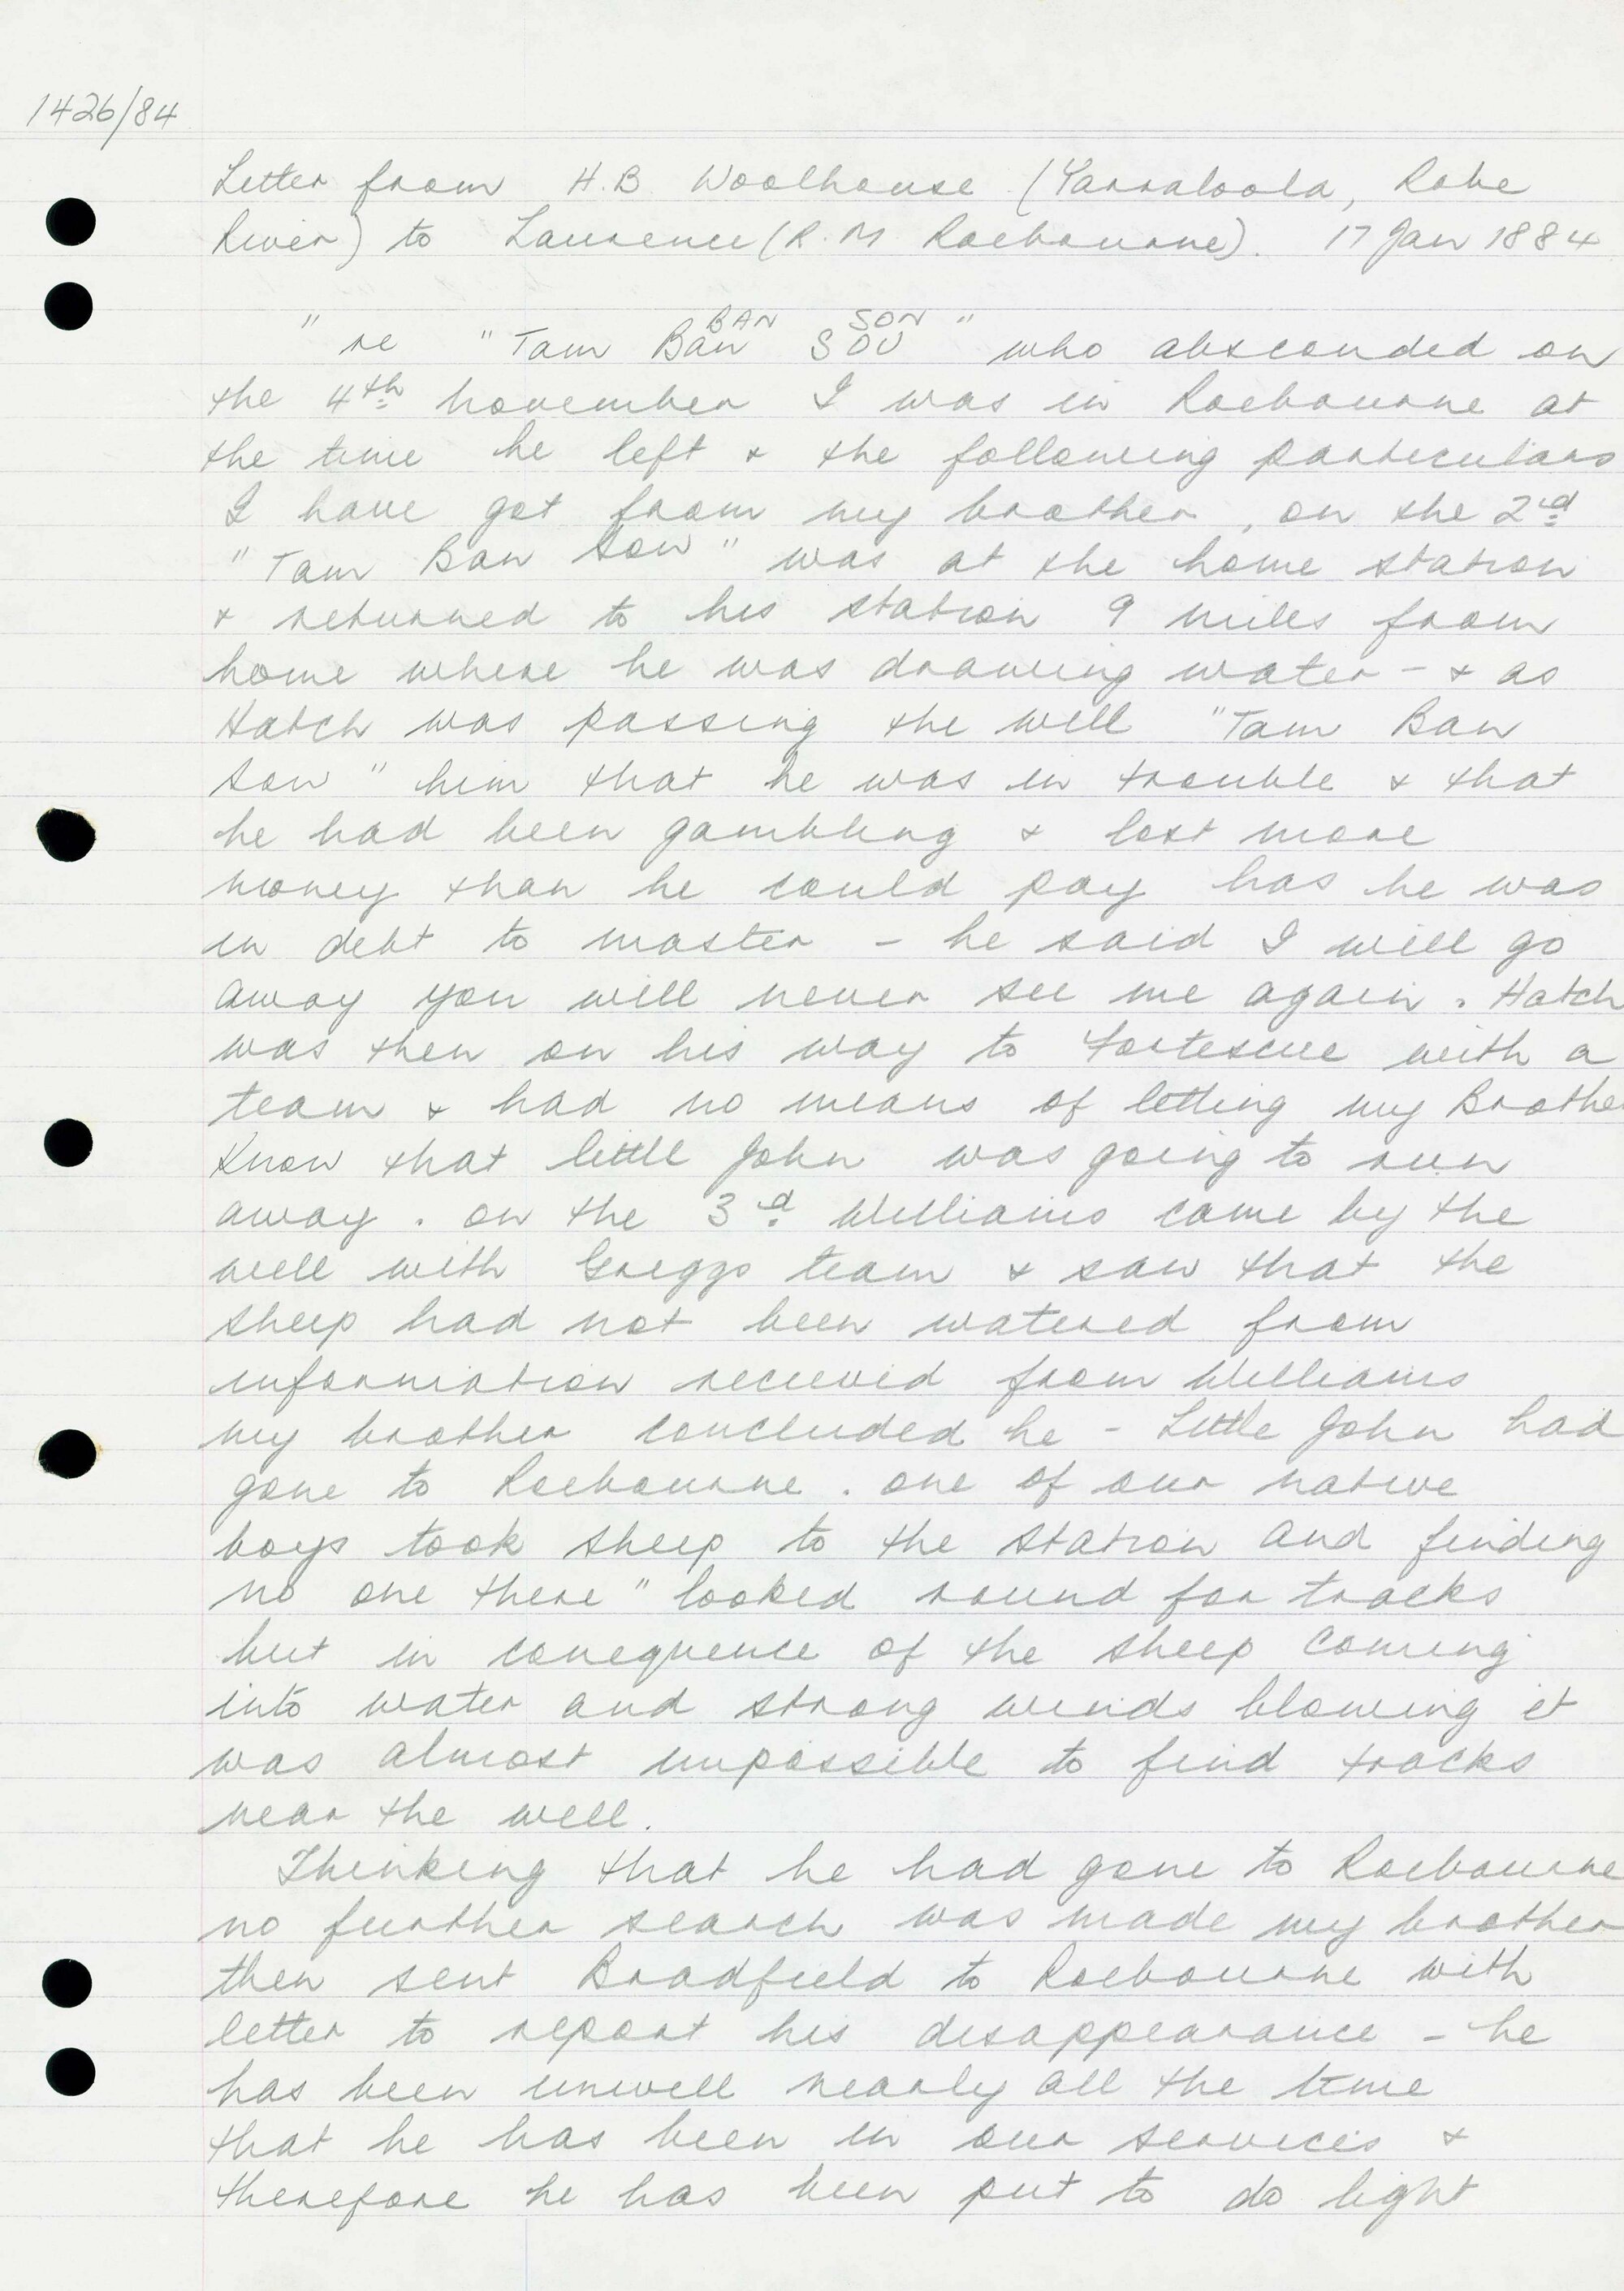 1426/84
Letter from H.B Woolhouse (Yarraloola, Robe
River) to Laurence (R.M Roebourne). 17 Jan 1884
BAN SON
" re "Tam Ban SOU" who absconded on
the 4th november I was in Roebourne at
the time he left & the following particulars
I have got from my brother, on the 2nd
"Tam Ban Son" was at the home station
& returned to his station 9 miles from
home where he was drawing water - & as
Hatch was passing the well "Tam Ban
Son" him that he was in trouble & that
he had been gambling & lost more
money than he could pay has he was
in debt to master - he said I will go
away you will never see me again. Hatch
was then on his way to Fortescue with a
team & had no means of letting my Brothe
Know that little John was going to run
away. on the 3d Williams came by the
well with Greggs team & saw that the
sheep had not been watered from
information recieved from Williams
my brother concluded he - Little John had
gone to Roebourne. one of our native
boys took sheep to the station and finding
no one there" looked round for tracks
but in conequence of the sheep coming
into water and strong winds blowing it
was almost impossible to find tracks
near the well.
Thinking that he had gone to Roebourne
no further search was made my brother
then sent Bradfield to Roebourne with
letter to report his disappearance - he
has been unwell nearly all the time
that he has been in our services &
therefore he has been put to do light